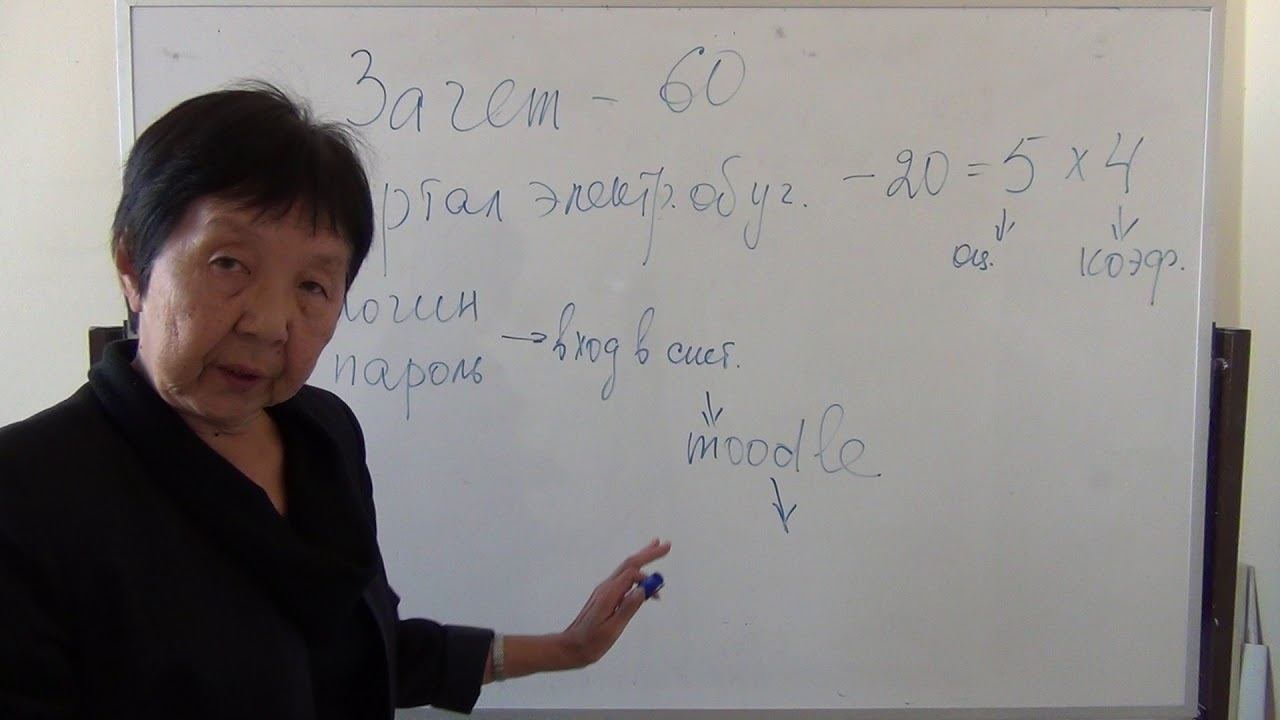 Зачет - 60
ртал электр. обуч. - 20 = 5 x 4
оц. коэф.
логин
пароль → вход в сист.
moodle